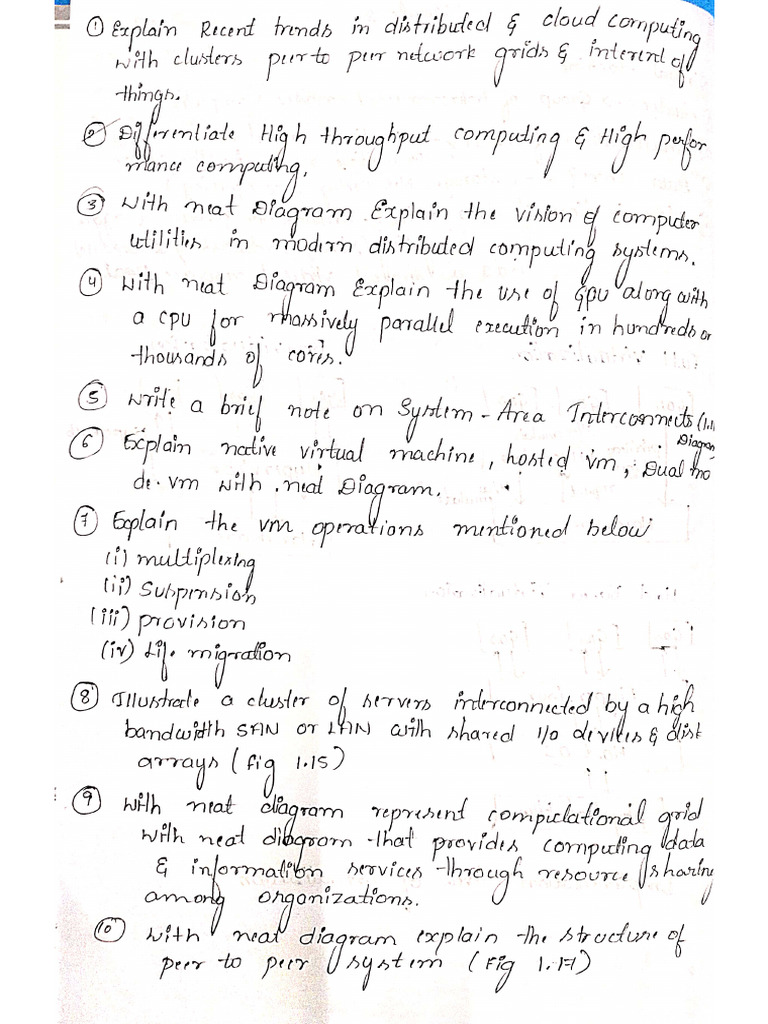 ① Explain Recent trends in distributed & cloud computing
with clusters peer to peer network grids & interent of
things.
② Differentiate High throughput computing & High perfor
mance computing.
③ With neat Diagram Explain the vision of computer
utilities in modern distributed computing systems.
④ With neat Diagram Explain the use of GPU along with
a CPU for massively parallel execution in hundreds or
thousands of cores.
⑤ Write a brief note on System-Area Interconnects (1.11
Diagram
⑥ Explain native virtual machine, hosted vm, Dual mo
de. vm with neat Diagram.
⑦ Explain the vm operations mentioned below
(i) multiplexing
(ii) Suspension
(iii) provision
(iv) Life migration
⑧ Illustrate a cluster of servers interconnected by a high
bandwidth SAN or LAN with shared I/o devices & disk
arrays (fig 1.15)
⑨ With neat diagram represent compiclational grid
with neat diagram that provides computing data
& information services through resource sharing
among organizations.
⑩ With neat diagram explain the structure of
peer to peer system (Fig 1.17)